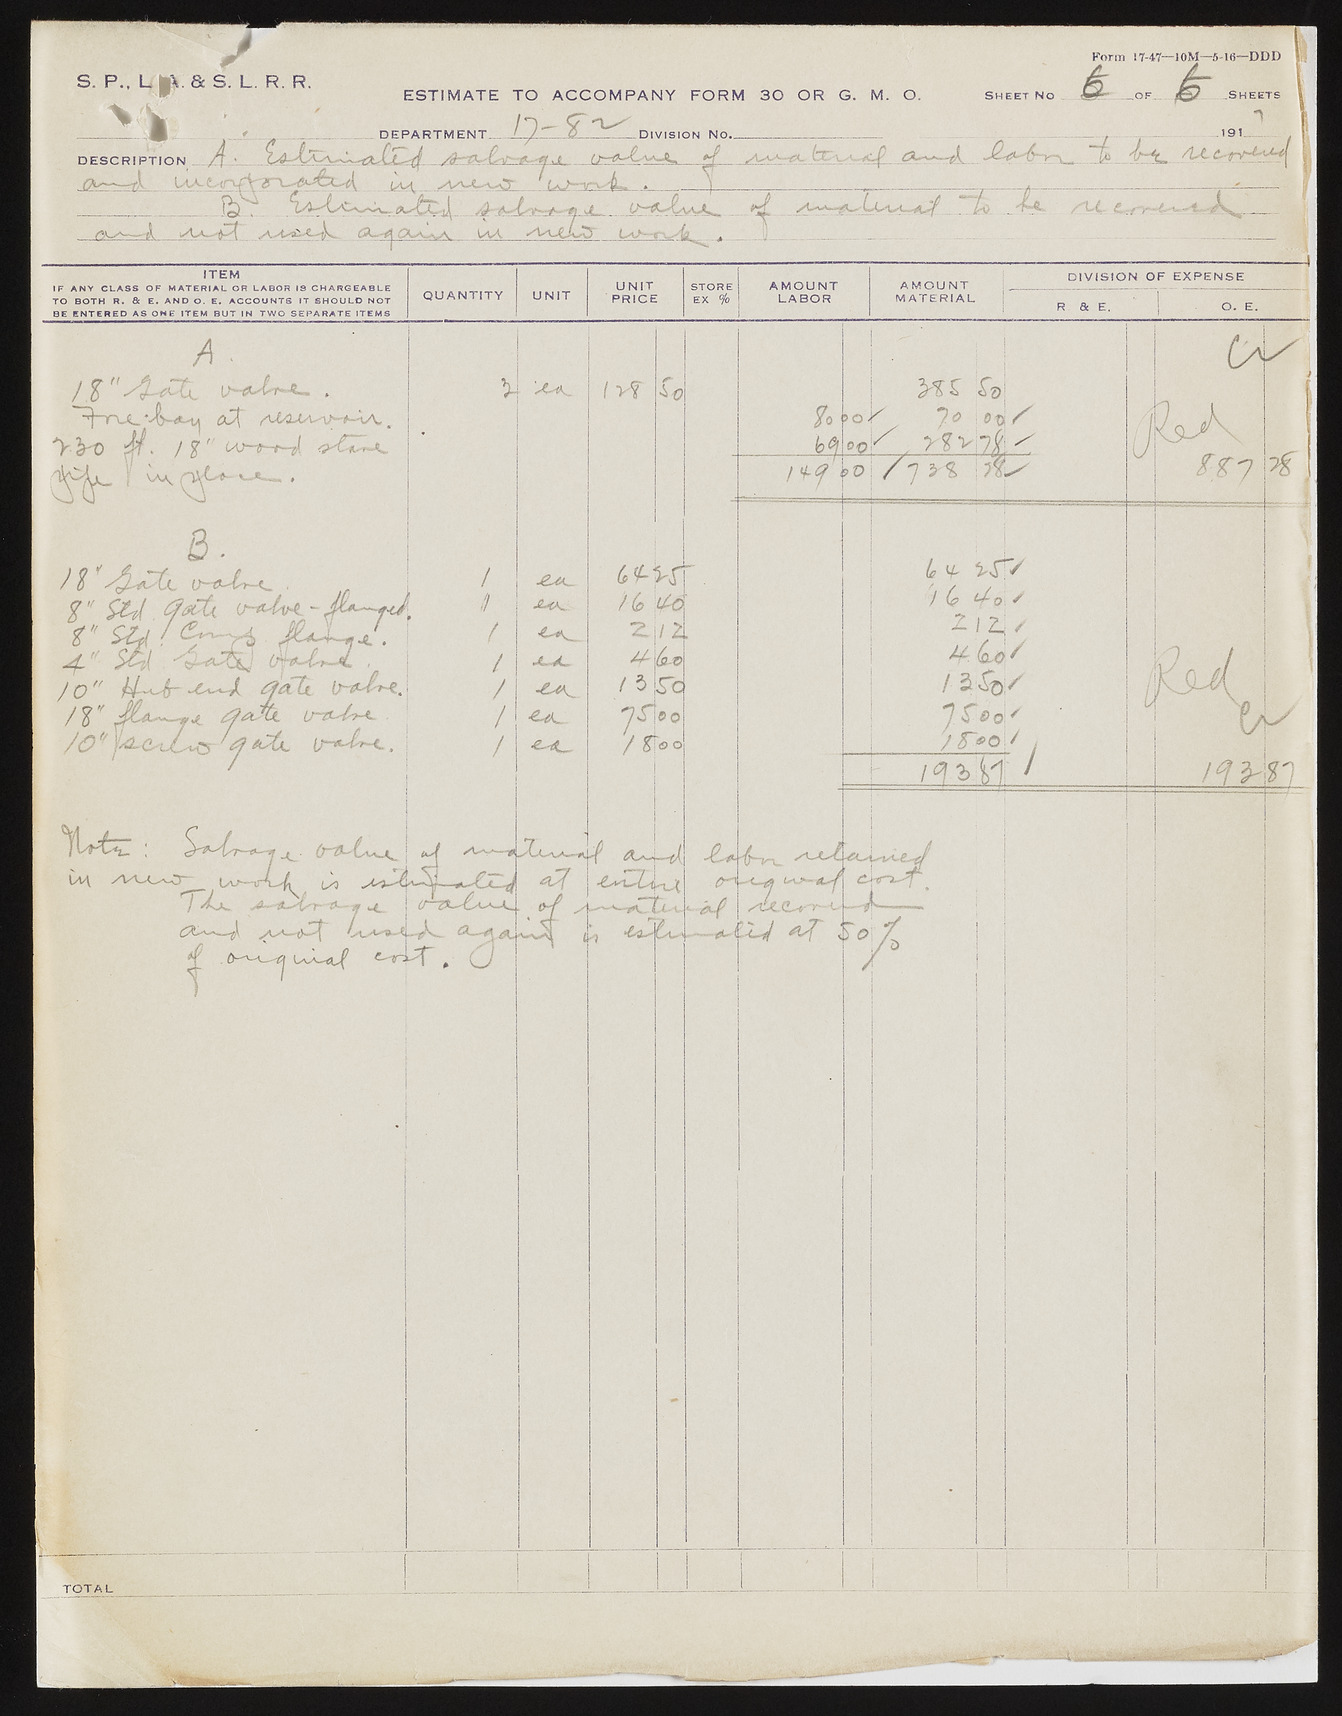 Form 17-47—10M—5-16—DDD
S. P., L. A. & S. L. R. R.
ESTIMATE TO ACCOMPANY FORM 30 OR G. M. O.
SHEET No 6 OF 6 SHEETS
DEPARTMENT 17-82 DIVISION No. 1917
DESCRIPTION A. Estimated salvage value of material and labor to be recovered
and incorporated in new work.
B. Estimated salvage value of material to be recovered
and not used again in new work.
ITEM
IF ANY CLASS OF MATERIAL OR LABOR IS CHARGEABLE
TO BOTH R. & E. AND O. E. ACCOUNTS IT SHOULD NOT
BE ENTERED AS ONE ITEM BUT IN TWO SEPARATE ITEMS
QUANTITY UNIT UNIT PRICE STORE EX % AMOUNT LABOR AMOUNT MATERIAL DIVISION OF EXPENSE
R & E. O. E.
A. Cr
18" Gate valve. 3 ea 128 50 385 50
Fore-bay at reservoir. 80 00 70 00 Red
230 ft. 18" wood stave 69 00 282 78
pipe in place. 149 00 738 28 887 28
B.
18" Gate valve 1 ea 64 25 64 25
8" Std gate valve - flanged. 1 ea 16 40 16 40
8" Std. Comp flange. 1 ea 2 12 2 12
4" Std Gate valve. 1 ea 4 60 4 60
10" Hub end gate valve. 1 ea 13 50 13 50 Red
18" flange gate valve 1 ea 75 00 75 00 Cr
10" screw gate valve. 1 ea 18 00 18 00
193 87 193 87
Note: Salvage value of material and labor retained
in new work is estimated at entire original cost.
The salvage value of material recovered
and not used again is estimated at 50%
of original cost.
TOTAL